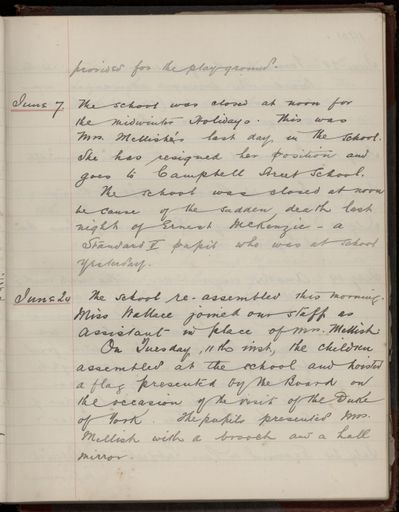 provided for the playground.
June 7 The school was closed at noon for
the midwinter Holidays. This was
Mrs. Mellish's last day in the School.
She has resigned her position and
goes to Campbell Street School.
The school was closed at noon
because of the sudden death last
night of Ernest McKenzie - a
Standard V pupil who was at school
yesterday.
June 24 The school re-assembled this morning.
Miss Wallace joined our staff as
assistant in place of Mrs. Mellish.
On Tuesday, 11th inst, the children
assembled at the school and hoisted
a flag presented by the Board on
the occasion of the visit of the Duke
of York. The pupils presented Mrs.
Mellish with a brooch and a hall
mirror.